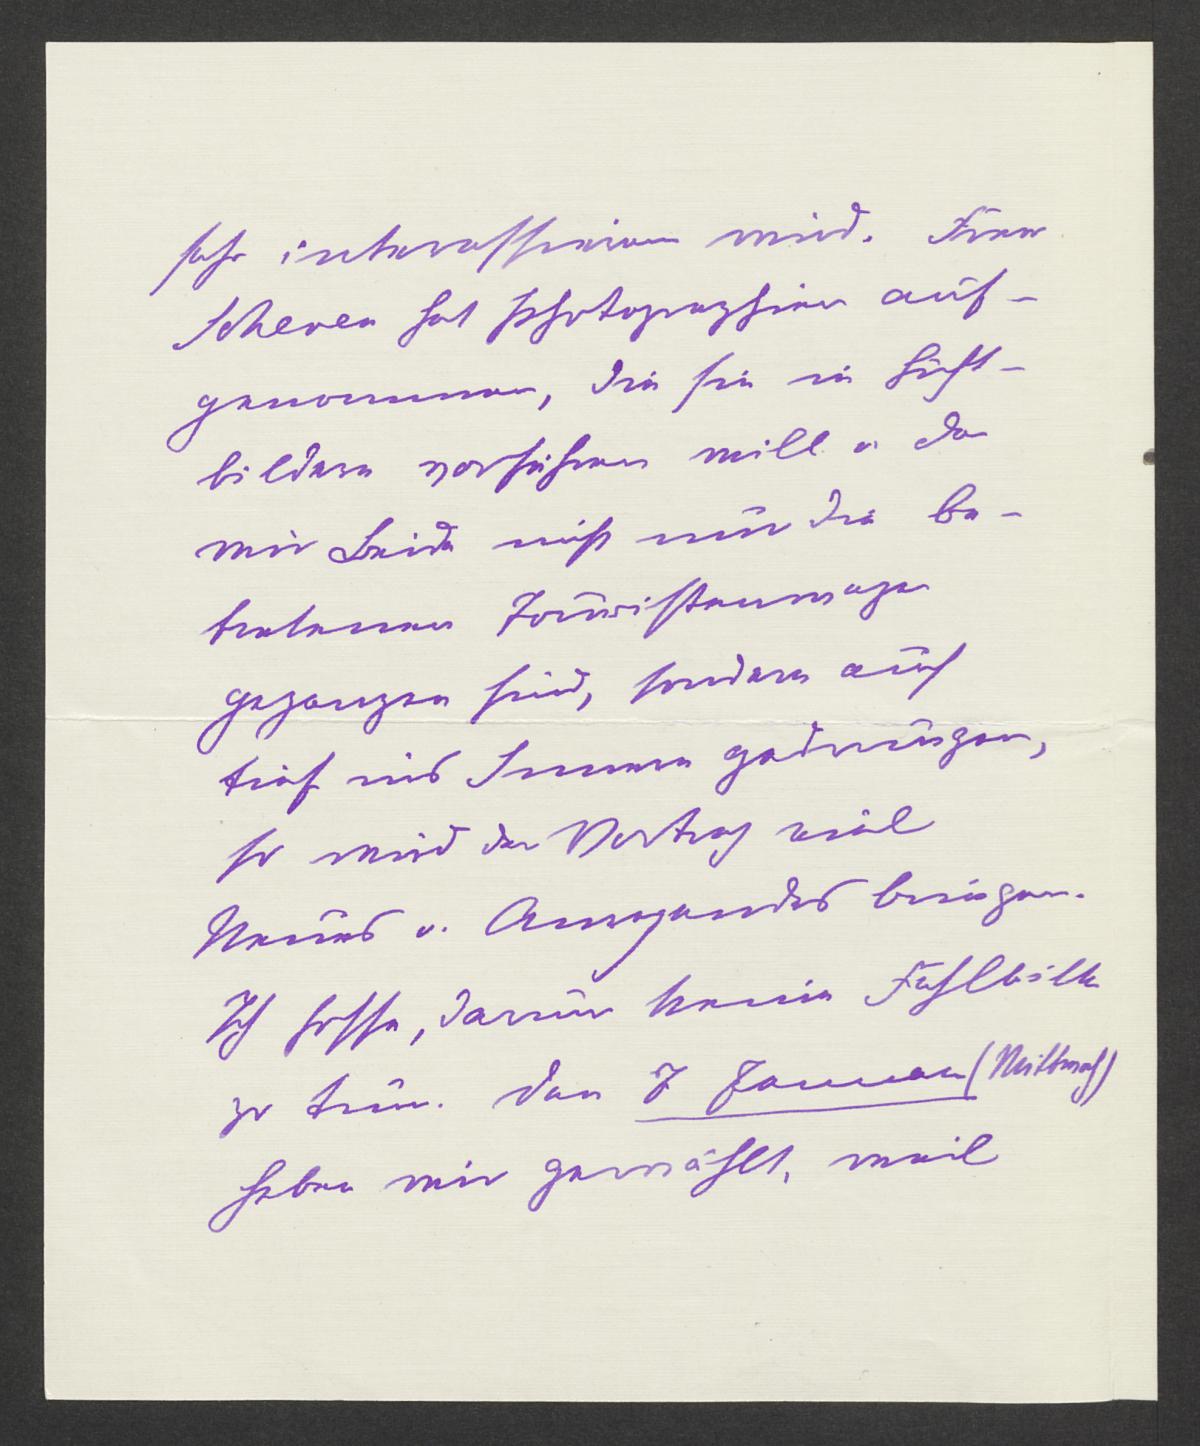 sehr interessieren wird. Frau
Scheven hat Photographien auf-
genommen, die sie in Licht-
bildern vorführen will u. da
wir Beide nicht nur die be-
tretenen Touristenwege
gegangen sind, sondern auch
tief ins Innere gedrungen,
so wird der Vortrag viel
Neues u. Anregendes bringen.
Ich hoffe, darum keine Fehlbitte
zu tun. Den 7 Januar (Mittwoch)
haben wir gewählt, weil